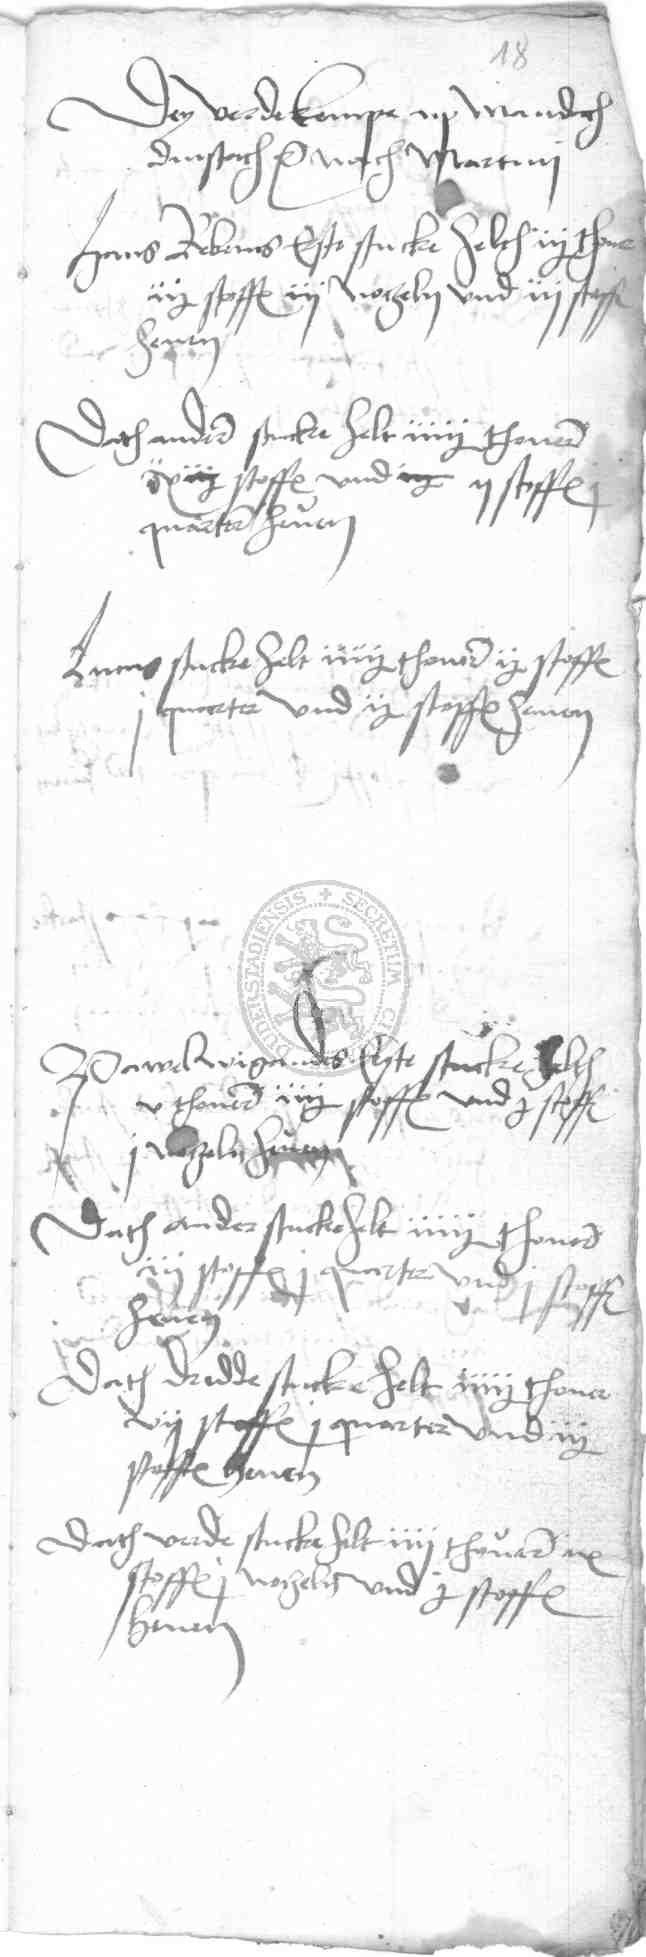 18
Dey verde kempe up mandach
dinstach nach Martini
Hans stucke helt iiij thover
iij stoffe iij nozeln und iij stoffe
heven
Dath ander stucke helt iiiij thover
stoffe und ij stoffe j
quarter heven
stucke helt iiiij thover ij stoffe
j quarter und ij stoffe heven
DUDERSTADIENSIS + SECRETUM
Pawel wigandes Erste stucke helth
v thover iiij stoffe und ij stoffe
j nozeln heven
Dath ander stucke helt iiiij thover
iij stoffe j quarter und j stoffe
heven
Dath dredde stucke helt iiiij thover
vij stoffe j quarter und iij
stoffe heven
Dath verde stucke helt iiij thover
stoffe j nozeln und ij stoffe
heven